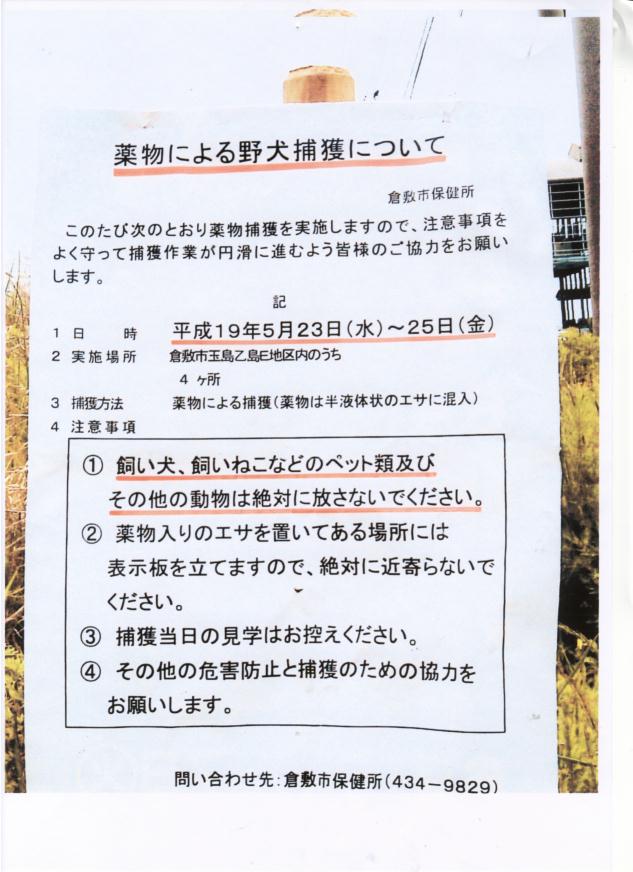 薬物による野犬捕獲について
倉敷市保健所
このたび次のとおり薬物捕獲を実施しますので、注意事項を
よく守って捕獲作業が円滑に進むよう皆様のご協力をお願い
します。
記
1 日 時 平成19年5月23日(水)～25日(金)
2 実施場所 倉敷市玉島乙島E地区内のうち
4 ヶ所
3 捕獲方法 薬物による捕獲(薬物は半液体状のエサに混入)
4 注意事項
① 飼い犬、飼いねこなどのペット類及び
その他の動物は絶対に放さないでください。
② 薬物入りのエサを置いてある場所には
表示板を立てますので、絶対に近寄らないで
ください。
③ 捕獲当日の見学はお控えください。
④ その他の危害防止と捕獲のための協力を
お願いします。
問い合わせ先:倉敷市保健所(434-9829)